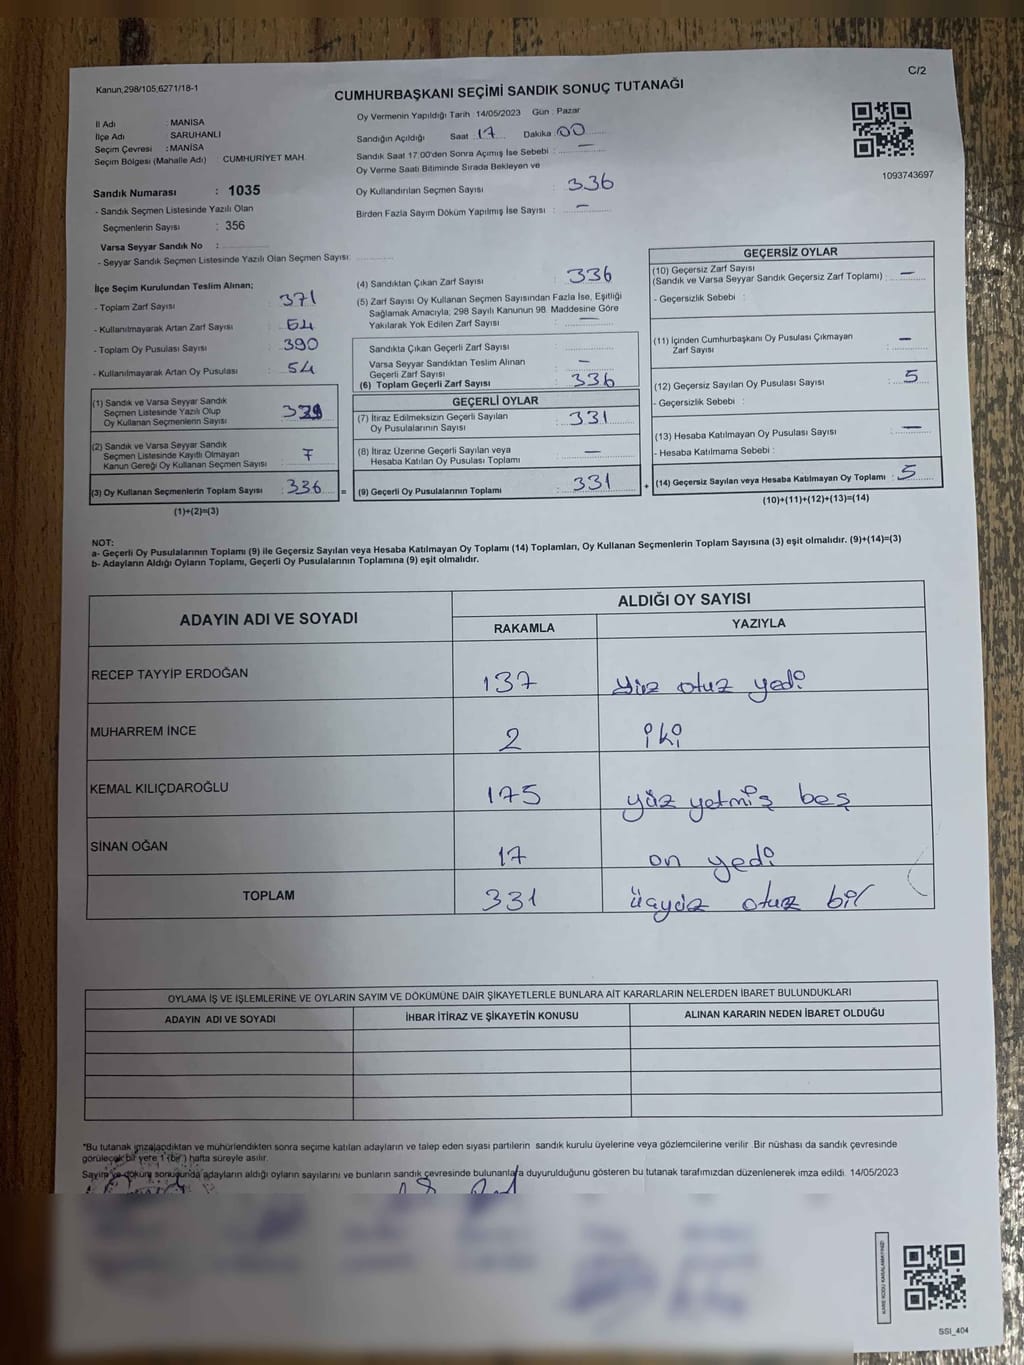 C/2
Kanun,298/105,6271/18-1
CUMHURBAŞKANI SEÇİMİ SANDIK SONUÇ TUTANAĞI
İl Adı : MANİSA
İlçe Adı : SARUHANLI
Seçim Çevresi : MANİSA
Seçim Bölgesi (Mahalle Adı) CUMHURİYET MAH.
Sandık Numarası : 1035
- Sandık Seçmen Listesinde Yazılı Olan
Seçmenlerin Sayısı : 356
Varsa Seyyar Sandık No :
- Seyyar Sandık Seçmen Listesinde Yazılı Olan Seçmen Sayısı:
Oy Vermenin Yapıldığı Tarih : 14/05/2023 Gün : Pazar
Sandığın Açıldığı Saat 17 Dakika 00
Sandık Saat 17:00'den Sonra Açımış İse Sebebi : —
Oy Verme Saati Bitiminde Sırada Bekleyen ve
Oy Kullandırılan Seçmen Sayısı : 336
Birden Fazla Sayım Döküm Yapılmış İse Sayısı : —
1093743697
İlçe Seçim Kurulundan Teslim Alınan;
- Toplam Zarf Sayısı : 371
- Kullanılmayarak Artan Zarf Sayısı :
- Toplam Oy Pusulası Sayısı : 390
- Kullanılmayarak Artan Oy Pusulası : 54
(1) Sandık ve Varsa Seyyar Sandık
Seçmen Listesinde Yazılı Olup
Oy Kullanan Seçmenlerin Sayısı
(2) Sandık ve Varsa Seyyar Sandık
Seçmen Listesinde Kayıtlı Olmayan
Kanun Gereği Oy Kullanan Seçmen Sayısı : 7
(3) Oy Kullanan Seçmenlerin Toplam Sayısı : 336 =
(1)+(2)=(3)
(4) Sandıktan Çıkan Zarf Sayısı : 336
(5) Zarf Sayısı Oy Kullanan Seçmen Sayısından Fazla İse, Eşitliği
Sağlamak Amacıyla; 298 Sayılı Kanunun 98. Maddesine Göre
Yakılarak Yok Edilen Zarf Sayısı : —
Sandıkta Çıkan Geçerli Zarf Sayısı :
Varsa Seyyar Sandıktan Teslim Alınan
Geçerli Zarf Sayısı : —
(6) Toplam Geçerli Zarf Sayısı : 336
GEÇERLİ OYLAR
(7) İtiraz Edilmeksizin Geçerli Sayılan
Oy Pusulalarının Sayısı : 331
(8) İtiraz Üzerine Geçerli Sayılan veya
Hesaba Katılan Oy Pusulası Toplamı : —
(9) Geçerli Oy Pusulalarının Toplamı : 331 +
GEÇERSİZ OYLAR
(10) Geçersiz Zarf Sayısı
(Sandık ve Varsa Seyyar Sandık Geçersiz Zarf Toplamı) : —
- Geçersizlik Sebebi :
(11) İçinden Cumhurbaşkanı Oy Pusulası Çıkmayan
Zarf Sayısı : —
(12) Geçersiz Sayılan Oy Pusulası Sayısı : 5
- Geçersizlik Sebebi :
(13) Hesaba Katılmayan Oy Pusulası Sayısı : —
- Hesaba Katılmama Sebebi :
(14) Geçersiz Sayılan veya Hesaba Katılmayan Oy Toplamı : 5
(10)+(11)+(12)+(13)=(14)
NOT:
a- Geçerli Oy Pusulalarının Toplamı (9) ile Geçersiz Sayılan veya Hesaba Katılmayan Oy Toplamı (14) Toplamları, Oy Kullanan Seçmenlerin Toplam Sayısına (3) eşit olmalıdır. (9)+(14)=(3)
b- Adayların Aldığı Oyların Toplamı, Geçerli Oy Pusulalarının Toplamına (9) eşit olmalıdır.
ADAYIN ADI VE SOYADI
ALDIĞI OY SAYISI
RAKAMLA YAZIYLA
RECEP TAYYİP ERDOĞAN 137 yüz otuz yedi
MUHARREM İNCE 2 iki
KEMAL KILIÇDAROĞLU 175 yüz yetmiş beş
SİNAN OĞAN 17 on yedi
TOPLAM 331 üçyüz otuz bir
OYLAMA İŞ VE İŞLEMLERİNE VE OYLARIN SAYIM VE DÖKÜMÜNE DAİR ŞİKAYETLERLE BUNLARA AİT KARARLARIN NELERDEN İBARET BULUNDUKLARI
ADAYIN ADI VE SOYADI İHBAR İTİRAZ VE ŞİKAYETİN KONUSU ALINAN KARARIN NEDEN İBARET OLDUĞU
*Bu tutanak imzalandıktan ve mühürlendikten sonra seçime katılan adayların ve talep eden siyasi partilerin sandık kurulu üyelerine veya gözlemcilerine verilir .Bir nüshası da sandık çevresinde
görülecek bir yere 1 (bir) hafta süreyle asılır.
Sayım ve döküm sonucunda adayların aldığı oyların sayılarını ve bunların sandık çevresinde bulunanlara duyurulduğunu gösteren bu tutanak tarafımızdan düzenlenerek imza edildi. 14/05/2023
KARE KODU KARALAMAYINIZ!
SSI_404